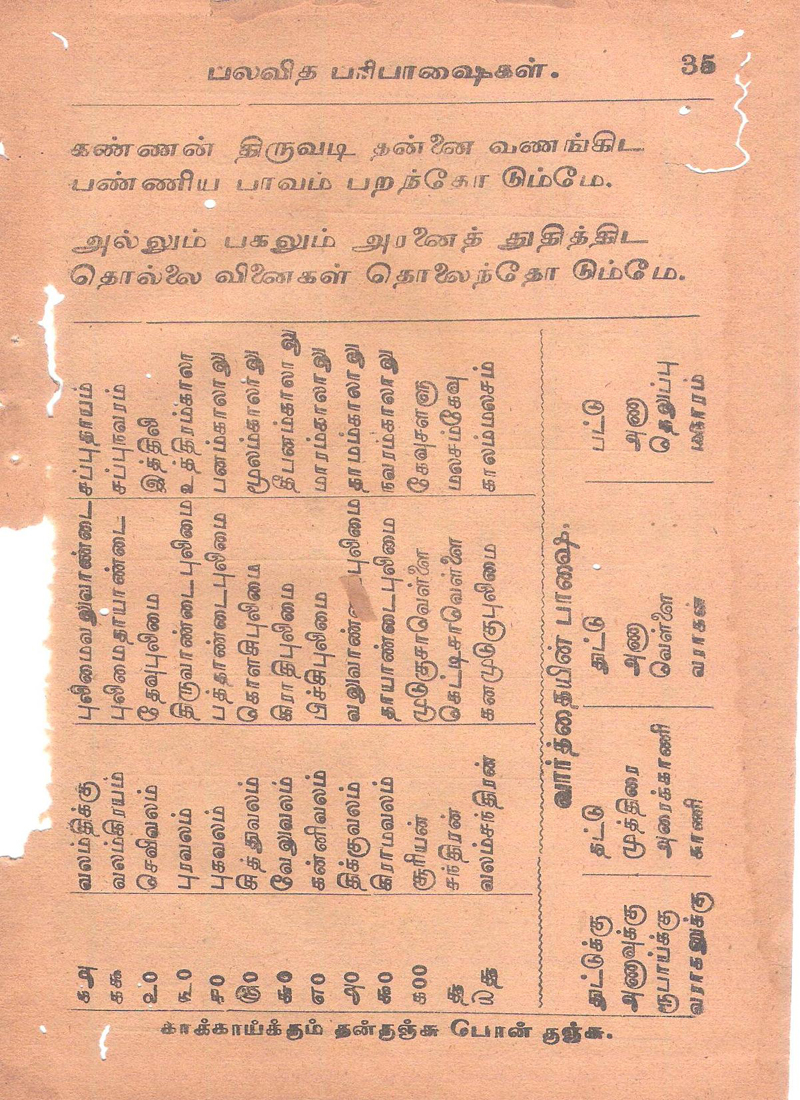 பலவித பரிபாஷைகள். 35
கண்ணன் திருவடி தன்னை வணங்கிட
பண்ணிய பாவம் பறந்கோ டும்மே.
அல்லும் பகலும் அரனைத் துதித்திட
தொல்லை வினைகள் தொலைந்தோ டும்மே.
௧௮ வலம்திக்கு புலிமைவலுவாண்டை சப்புதாயம்
௧௯ வலம்கிரயம் புலிமைதாயாண்டை சப்புநவரம்
௨0 செவிவலம் தேவுபுலிமை இத்திலி
௩0 புரவலம் திருவாண்டைபுலிமை உத்திரம்காலா
௪0 புகவலம் பத்தாண்டைபுலிமை பனம்காலாலு
௫0 சித்துவலம் கொளசிபுலிமை மூலம்காலாலு
௬0 வேலுவலம் கிராதிபுலிமை தீபனம்காலாலு
௭0 கன்னிவலம் பிச்சிபுலிமை மாரம்காலாலு
௮0 திக்குவலம் புலிமை தாமம்காலாலு
௯0 கிராமவலம் தாயாண்டைபுலிமை நவரம்காலாலு
௧00 சூரியன் முடுகுசாவெள்ளை கேவுசளளு
௲ சந்திரன் கெட்டிசாவெள்ளை மலசம்கேவு
௰௲ வலம்சந்திரன் கனமுடுகுபுலிமை காலம்மலசம்
வார்த்தையின் பாஷை.
துட்டுக்கு தட்டு துட்டு பட்டு
அணவுக்கு முத்திரை அண அண
ரூபாய்க்கு அரைக்காணி வெள்ளை தெலுப்பு
வராகனுக்கு காணி வராகன
காக்காய்க்கும் தன்குஞ்சு பொன் குஞ்சு.